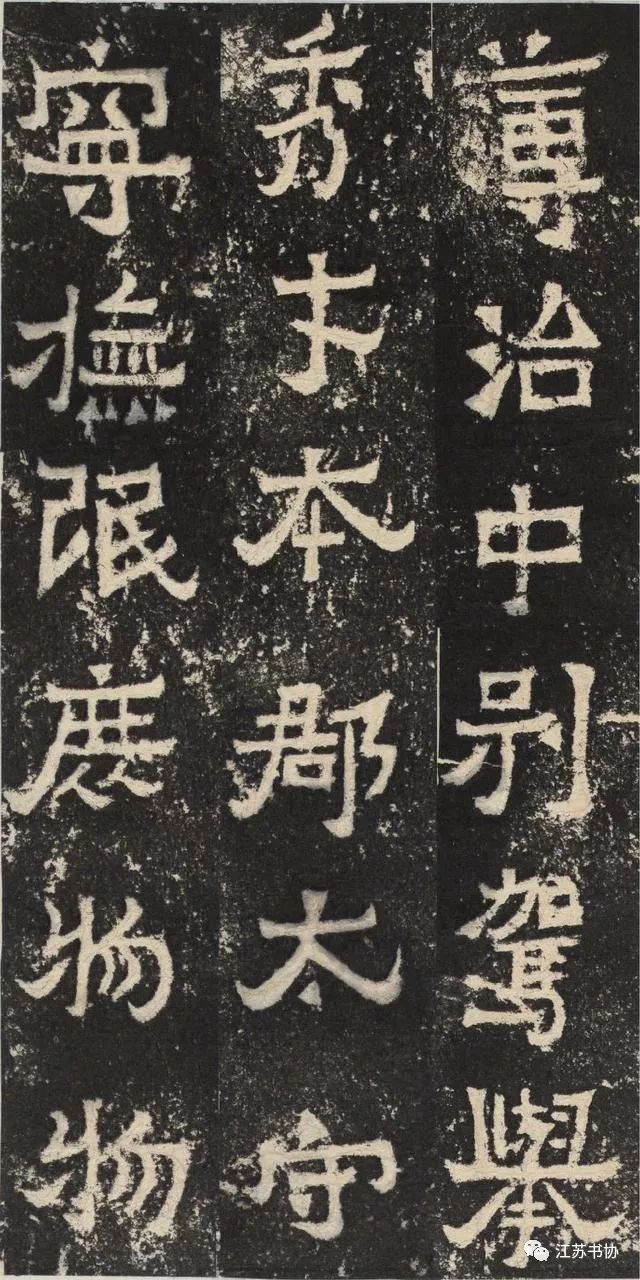 簿治中別駕舉
秀才本郡太守
寧撫氓庶物物
江苏书协